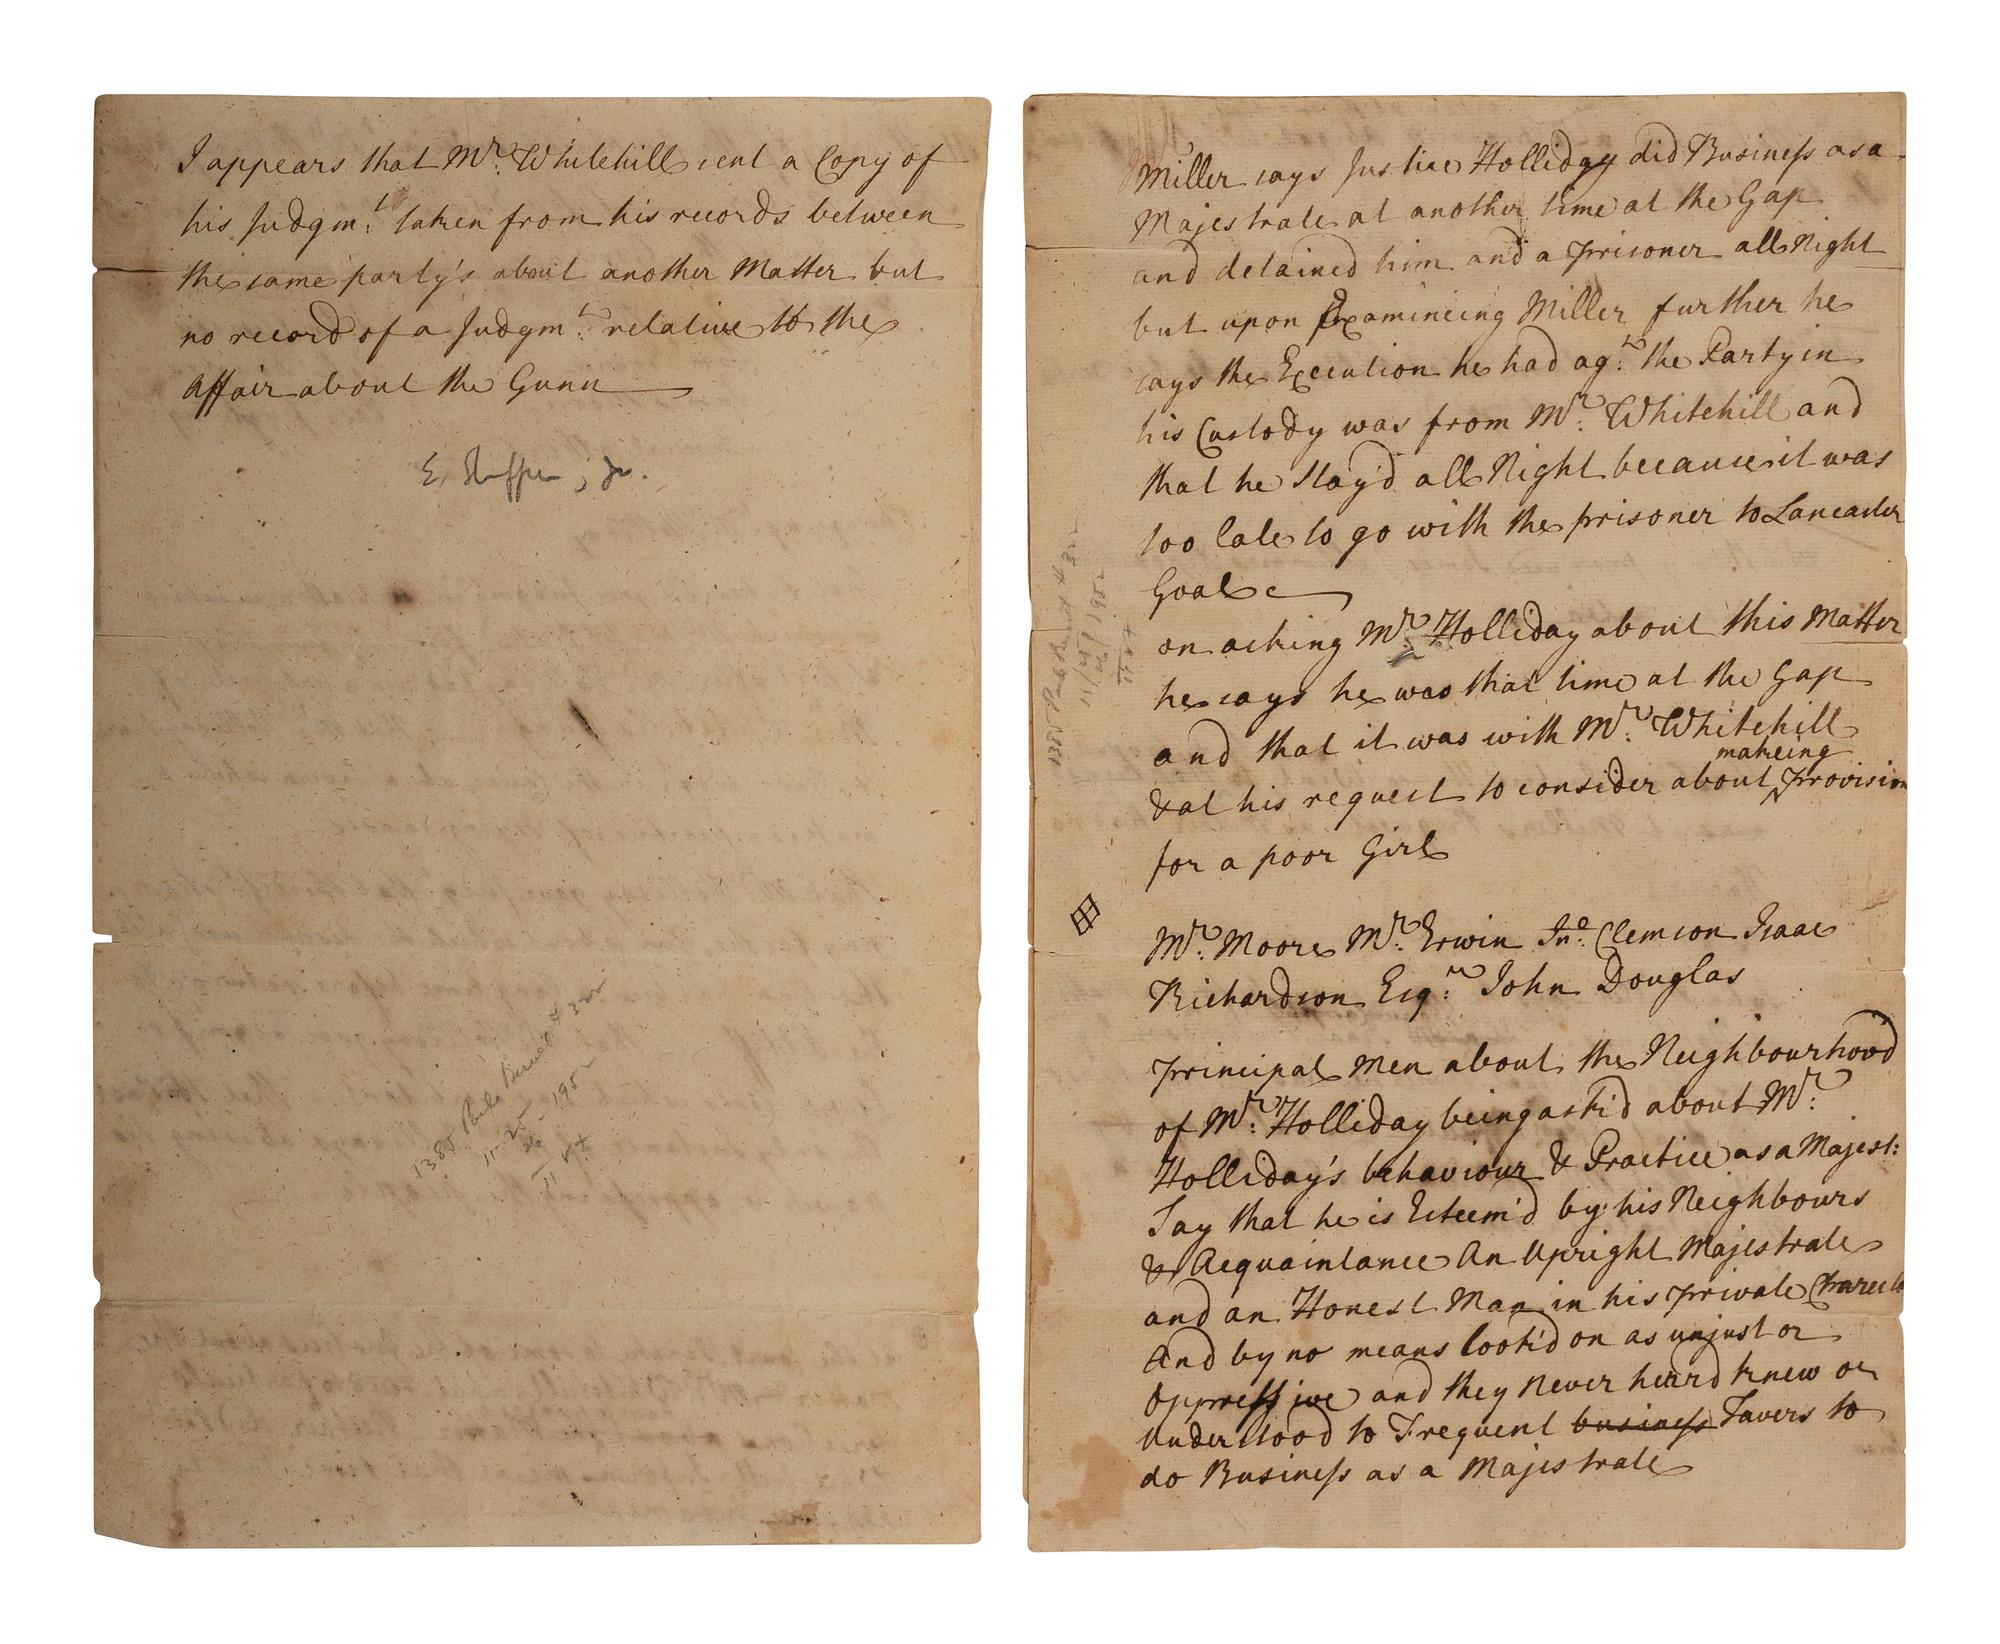 I appears that Mr. Whitehill sent a Copy of
his Judgmt. taken from his records between
the same party's about another Matter but
no record of a Judgmt. relative to the
affair about the Gunn
Jr.
1380
11-25-195
26
11 44
Miller says Justice Holliday did Business as a
Majestrate at another time at the Gap
and detained him and a prisoner all Night
but upon Examineing Miller further he
says the Execution he had agt. the Party in
his Custody was from Mr. Whitehill and
that he stay'd all Night because it was
too late to go with the prisoner to Lancaster
Goal
on asking Mr. Holliday about this Matter
he says he was that time at the Gap
and that it was with Mr. Whitehill
makeing
& at his request to consider about provision
for a poor Girl
Mr. Moore Mr. Erwin Jno. Clemson Isaac
Richardson Esqr. John Douglas
principal Men about the Neighbourhood
of Mr. Holliday being ask'd about Mr.
Holliday's behaviour & Practice as a Majest:
Say that he is Esteem'd by his Neighbours
& Acquaintance An Upright Majestrate
and an Honest Man in his private Charecta
And by no means look'd on as unjust or
Oppressive and they Never herrd knew or
Understood to Frequent business Tavers to
do Business as a Majestrate